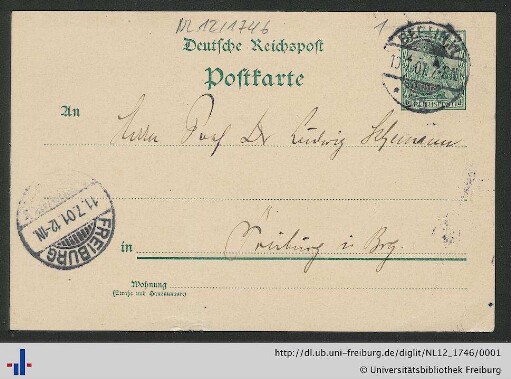 NL 12/1746
1
Deutsche Reichspost
Postkarte
BERLIN
An
Herrn Prof Dr Ludwig Schemann
11.7.01.12-1N.
FREIBURG
in Freiburg i. Brg.
Wohnung
(Straße und Hausnummer)
http://dl.ub.uni-freiburg.de/diglit/NL12_1746/0001
© Universitätsbibliothek Freiburg